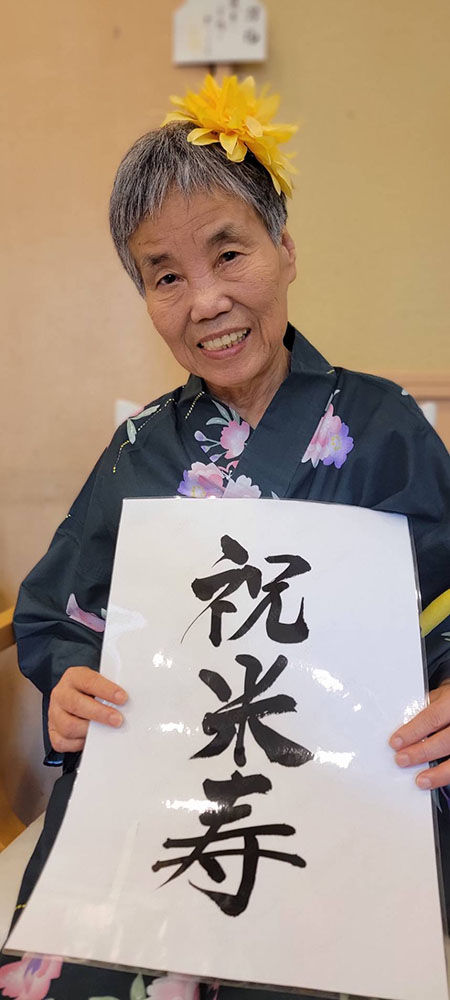 祝米寿